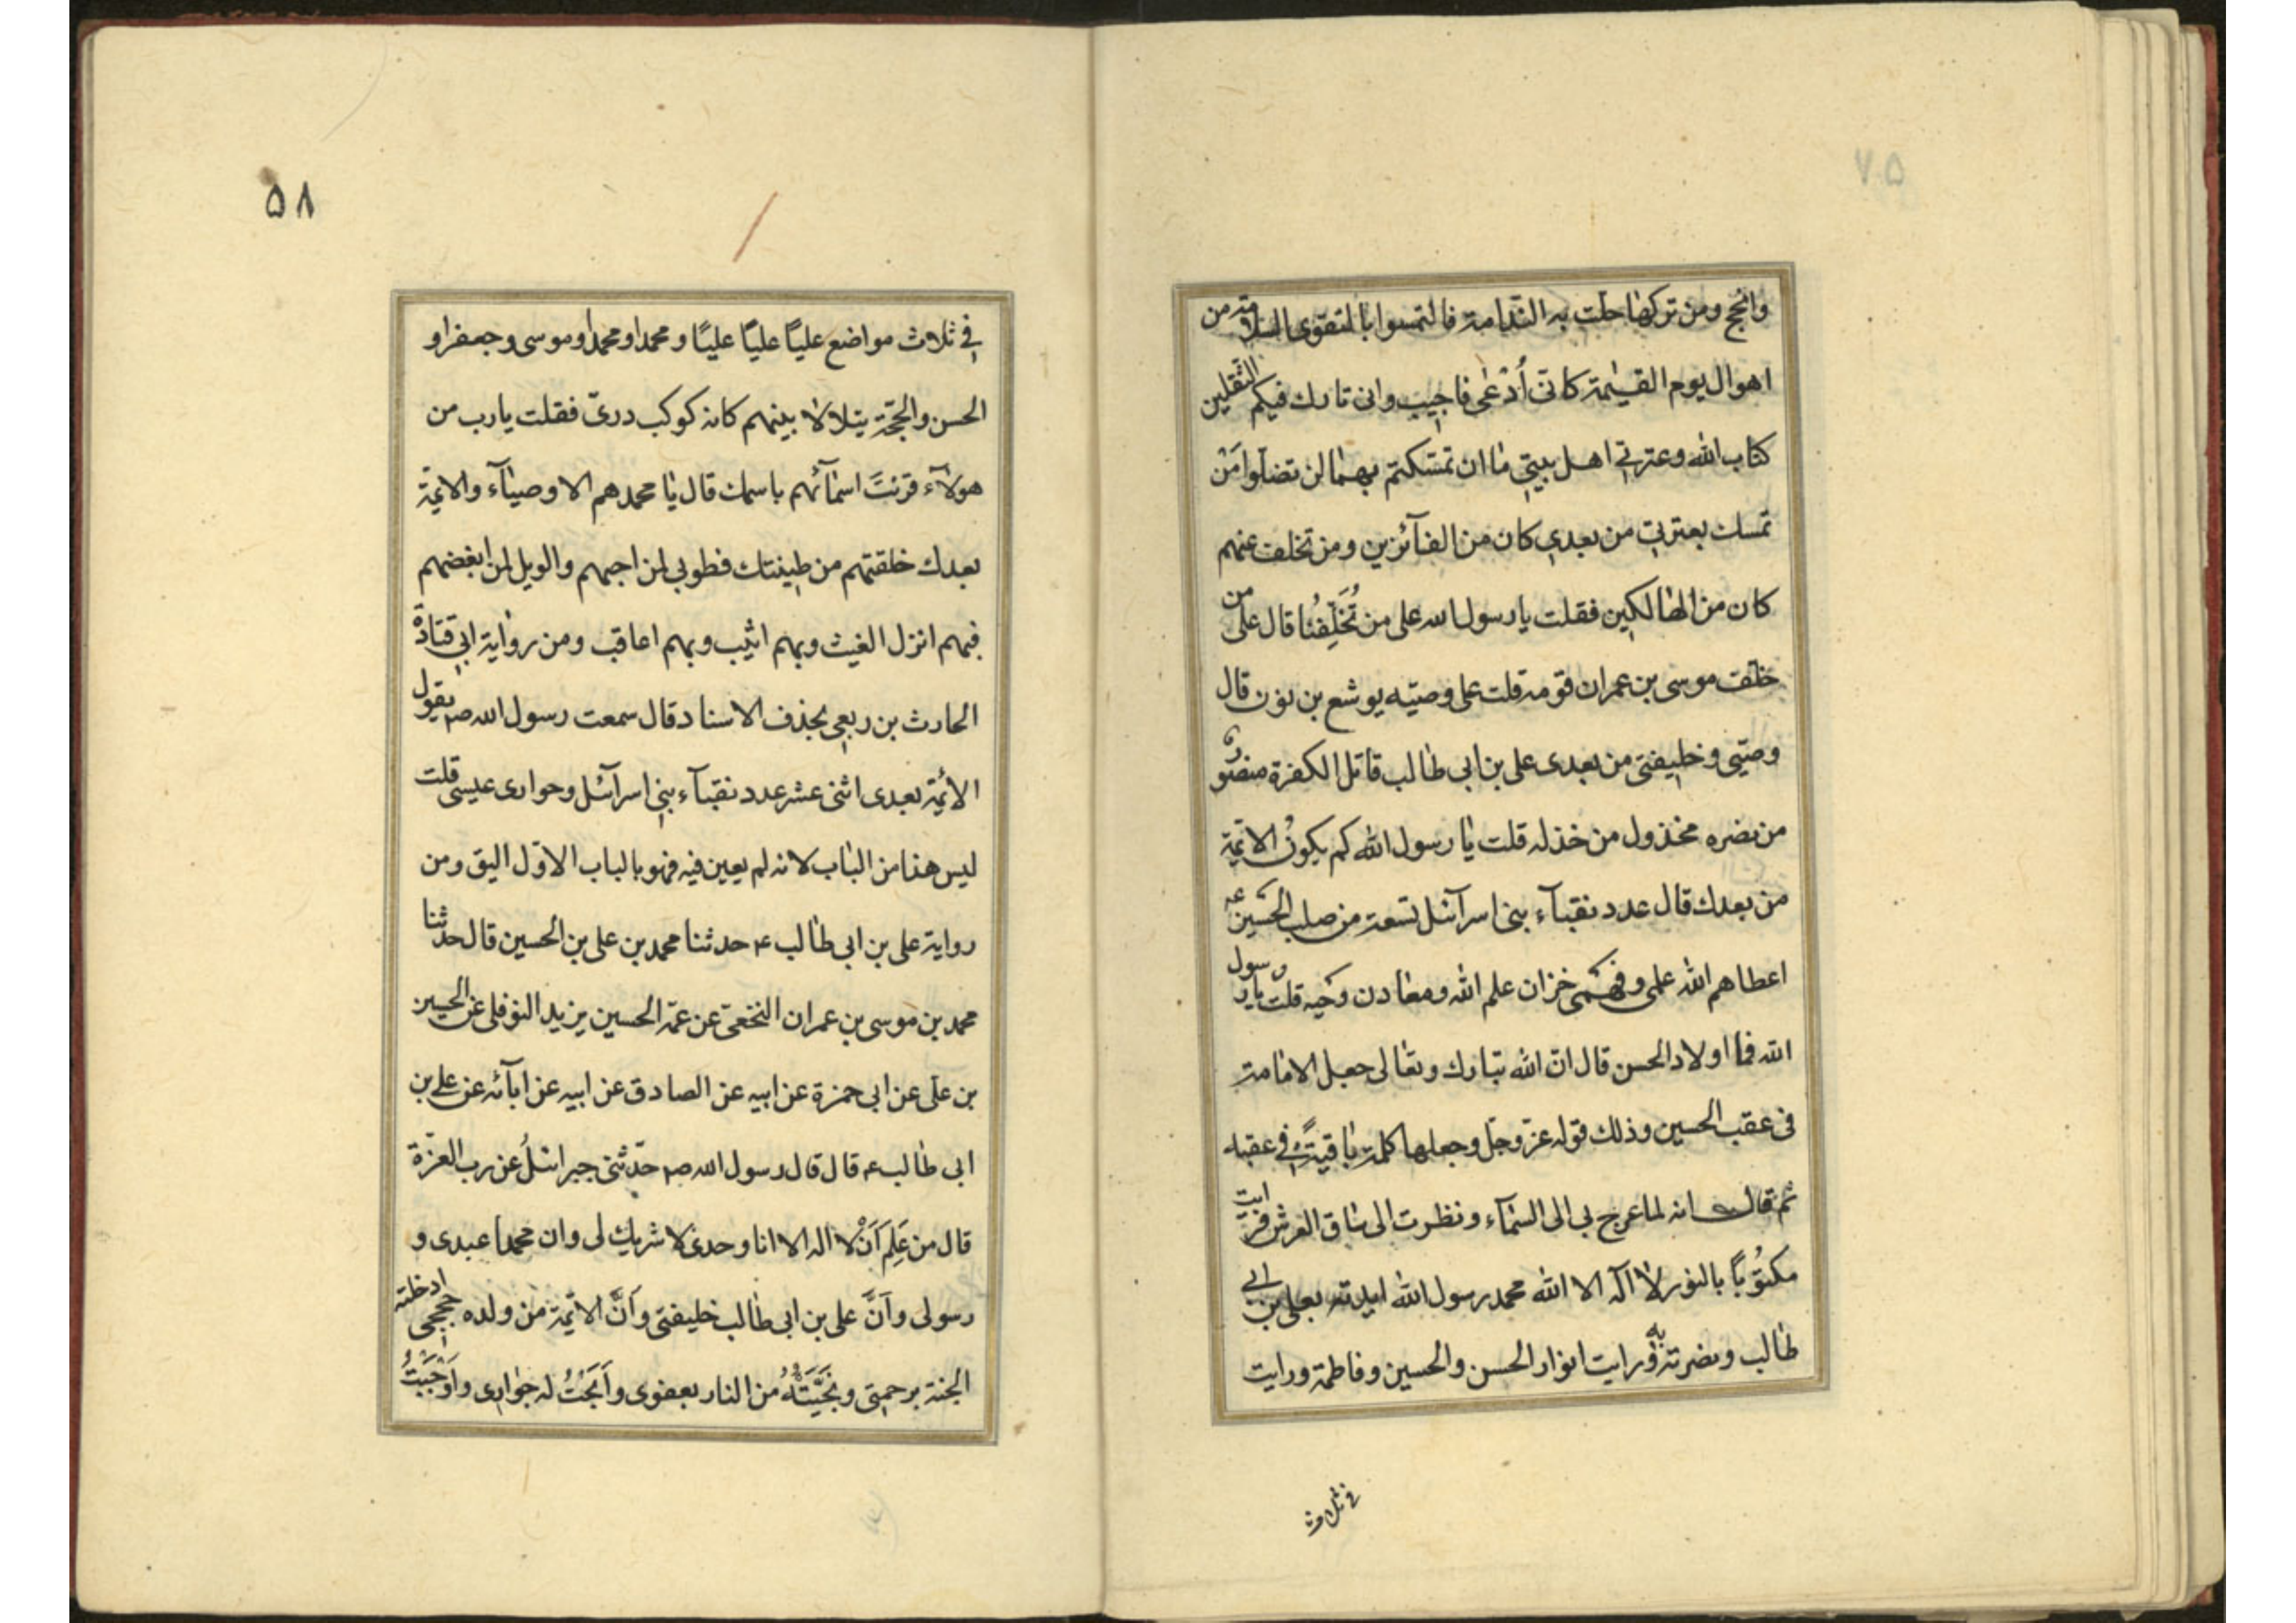 وانجح ومن تركها حلت به الندامة فالتمسوا بالتقوى السلامة من
اهوال يوم القيمة كانى أُدْعى فاجيب وانى تارك فيكم الثقلين
كتاب الله وعترتي اهل بيتي ما ان تمسكتم بهما لن تضلوا مَنْ
تمسك بعترتي من بعدي كان من الفآئزين ومن تخلف عنهم
كان من الهالكين فقلت يا رسول الله على من تُخَلِّفُنا قال على من
خلّف موسى بن عمران قومه قلت على وصيّه يوشع بن نون قال
وصيّي وخليفتى من بعدى على بن ابى طالب قاتل الكفرة منصور
من نصره مخذول من خذله قلت يا رسول الله كم يكونُ الائمّة
من بعدك قال عدد نقبآء بنى اسرآئل تسعة من صلب الحسين ع
اعطاهم الله علمى وفهمى خزان علم الله ومعادن وحيه قلت يا رسول
الله فما اولاد الحسن قال انّ الله تبارك وتعالى جعل الامامة
فى عقب الحسين وذلك قوله عزّ وجلّ وجعلها كلمة باقيةً في عقبه
ثم قال انه لما عرج بى الى السمآء ونظرت الى ساق العرش فرايت
مكتُوبًا بالنور لا اله الا الله محمد رسول الله ايدته بعلى بن ابي
طالب ونصرته به ورايت انوار الحسن والحسين وفاطمة ورايت
في ثلاث
٥٨
في ثلاث مواضع عليًا عليًا عليًا ومحمدا ومحمدا وموسى وجعفرا و
الحسن والحجّة يتلالا بينهم كانه كوكب درىّ فقلت يا رب من
هولآء قرنتَ اسمآئهم باسمك قال يا محمد هم الاوصيآء والائمّة
بعدك خلقتهم من طينتك فطوبي لمن احبهم والويل لمن ابغضهم
فبهم انزل الغيث وبهم اثيب وبهم اعاقب ومن رواية ابي قتادة
الحارث بن ربعي بحذف الاسناد قال سمعت رسول الله صم يقول
الائمّة بعدى اثنى عشر عدد نقبآء بني اسرآئل وحوارى عيسى قلت
ليس هذا من الباب لانه لم يعين فيه فهو بالباب الاوّل اليق ومن
رواية على بن ابى طالب ع حدثنا محمد بن على بن الحسين قال حدثنا
محمد بن موسى بن عمران النخعىّ عن عمّه الحسين يزيد النوفلى عن الحسين
بن على عن ابى حمزة عن ابيه عن الصادق عن ابيه عن ابآئه عن علي بن
ابى طالب ع قال قال رسول الله صم حدّثنى جبرائلُ عن رب العزّة
قال من عَلِمَ اَنْ لا اله الا انا وحدى لا شريك لى وان محمدا عبدى و
رسولى وَاَنَّ على بن ابى طالب خليفتى وَاَنَّ الائمّة من ولده حججى ادخلته
الجنة برحمتى ونجَّيْتُهُ من النار بعفوى وَاَبَحْتُ له جوارى وَاَوْجَبْتُ